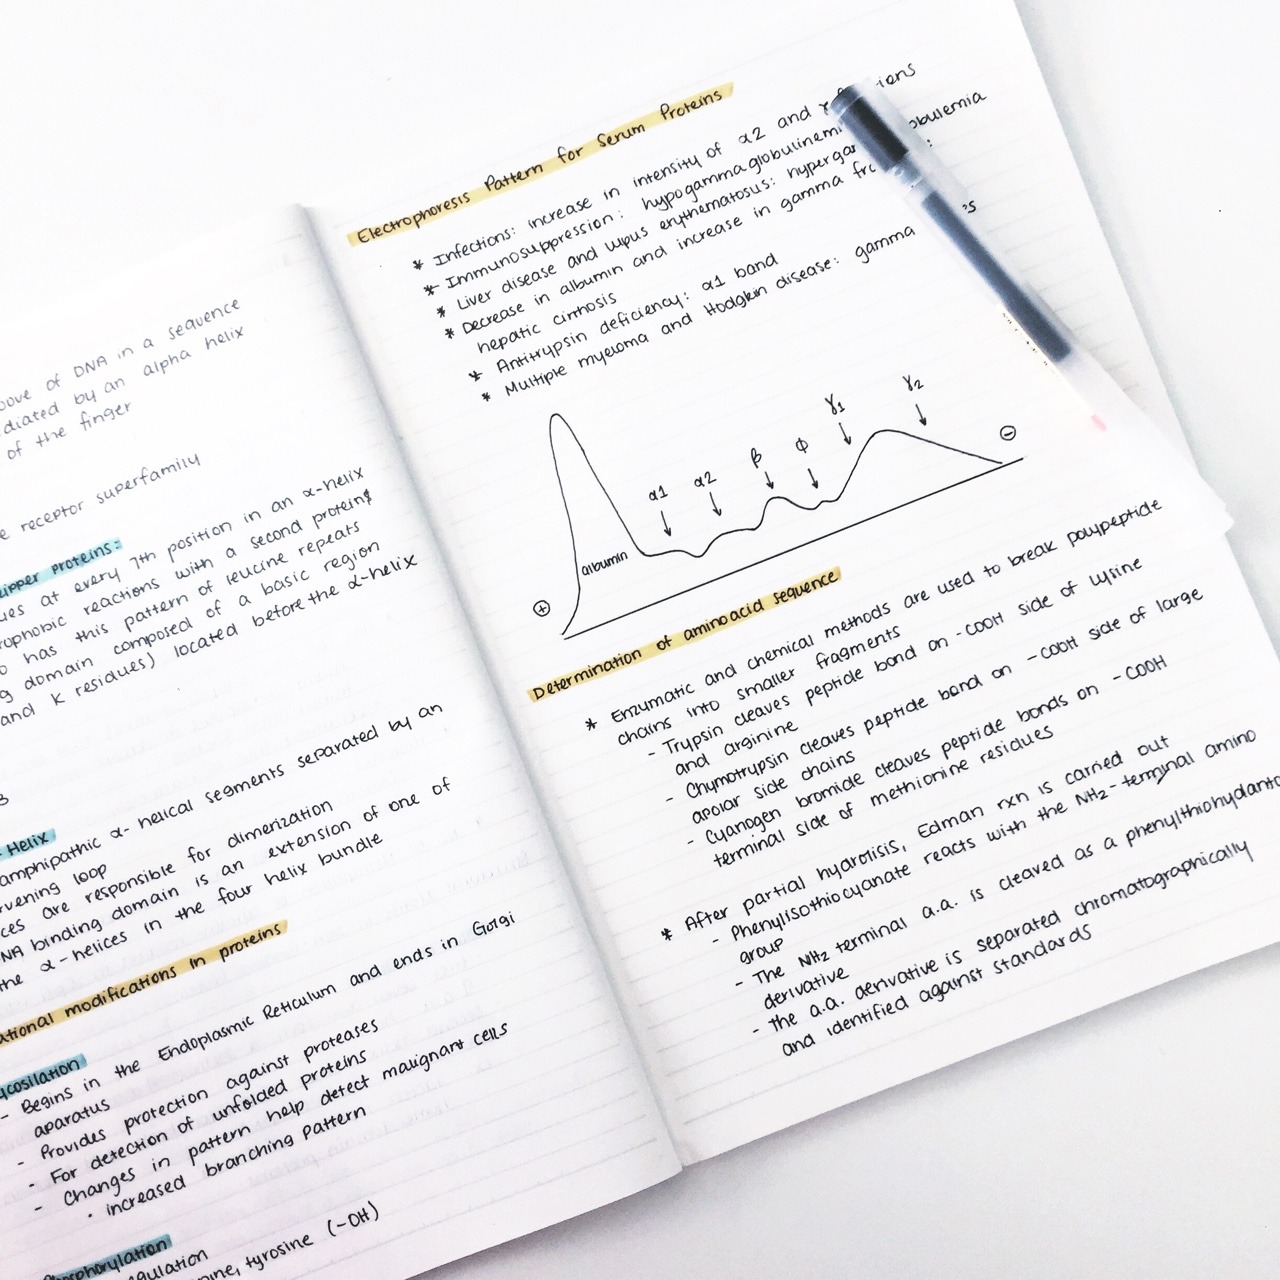 of DNA in a sequence
diated by an alpha helix
of the finger
e receptor superfamily
zipper proteins:
ues at every 7th position in an α-helix
rophobic reactions with a second proteins
o has this pattern of leucine repeats
g domain composed of a basic region
and K residues) located before the α-helix
3
- Helix
amphipathic α- helical segments separated by an
rvening loop
ces are responsible for dimerization
NA binding domain is an extension of one of
the α-helices in the four helix bundle
ational modifications in proteins
ycosilation
- Begins in the Endoplasmic Reticulum and ends in Gorgi
apparatus
- Provides protection against proteases
- For detection of unfolded proteins
- Changes in pattern help detect malignant cells
· increased branching pattern
phosphorylation
gulation
nine, tyrosine (-OH)
Electrophoresis Pattern for Serum Proteins
* Infections: increase in intensity of α2 and γ
* Immunosuppression: hypogammaglobulinemi
* Liver disease and lupus erythematosus: hypergam obulemia
* Decrease in albumin and increase in gamma fra :
hepatic cirrhosis
* Antitrypsin deficiency: α1 band
* Multiple myeloma and Hodgkin disease: gamma 's
albumin
α1
α2
β
Φ
γ1
γ2
+
-
Determination of aminoacid sequence
* Enzymatic and chemical methods are used to break polypeptide
chains into smaller fragments
- Trypsin cleaves peptide bond on -COOH side of lysine
and arginine
- Chymotrypsin cleaves peptide band on -COOH side of large
apolar side chains
- Cyanogen bromide cleaves peptide bonds on -COOH
terminal side of methionine residues
* After partial hydrolisis, Edman rxn is carried out
- Phenylisothiocyanate reacts with the NH2-terminal amino
group
- The NH2 terminal a.a. is cleaved as a phenylthiohydanto
derivative
- the a.a. derivative is separated chromatographically
and identified against standards